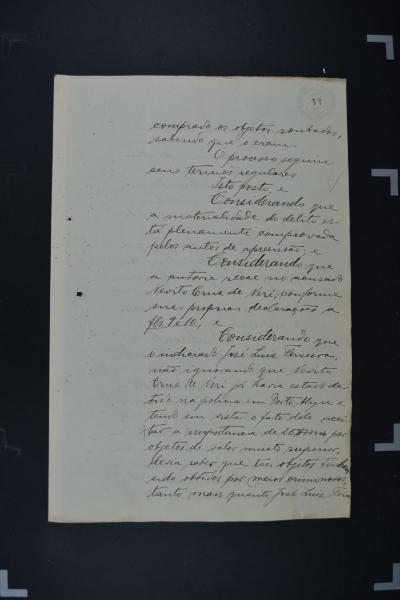 34
comprado os objetos roubados,
sabendo que o eram.
O processo seguiu
seus termos regulares
Isto posto, e
Considerando que
a materialidade do delito es-
tá plenamente comprovada
pelos autos de apreensão; e
Considerando que
a autoria recae no acusado
Cruz de Neri, conforme
suas proprias declarações a
fls 9 e 10; e
Considerando que
o indiciado José Luiz Ferreira,
não ignorando que
Cruz de Neri já havia estado de-
tido na policia em Porto Alegre e
tendo em vista o fato dele acei-
tar a importancia de por
objetos de valor muito superior,
devia saber que tais objetos tinham
sido obtidos por meios criminosos,
tanto mais quanto José Luiz Ferrei